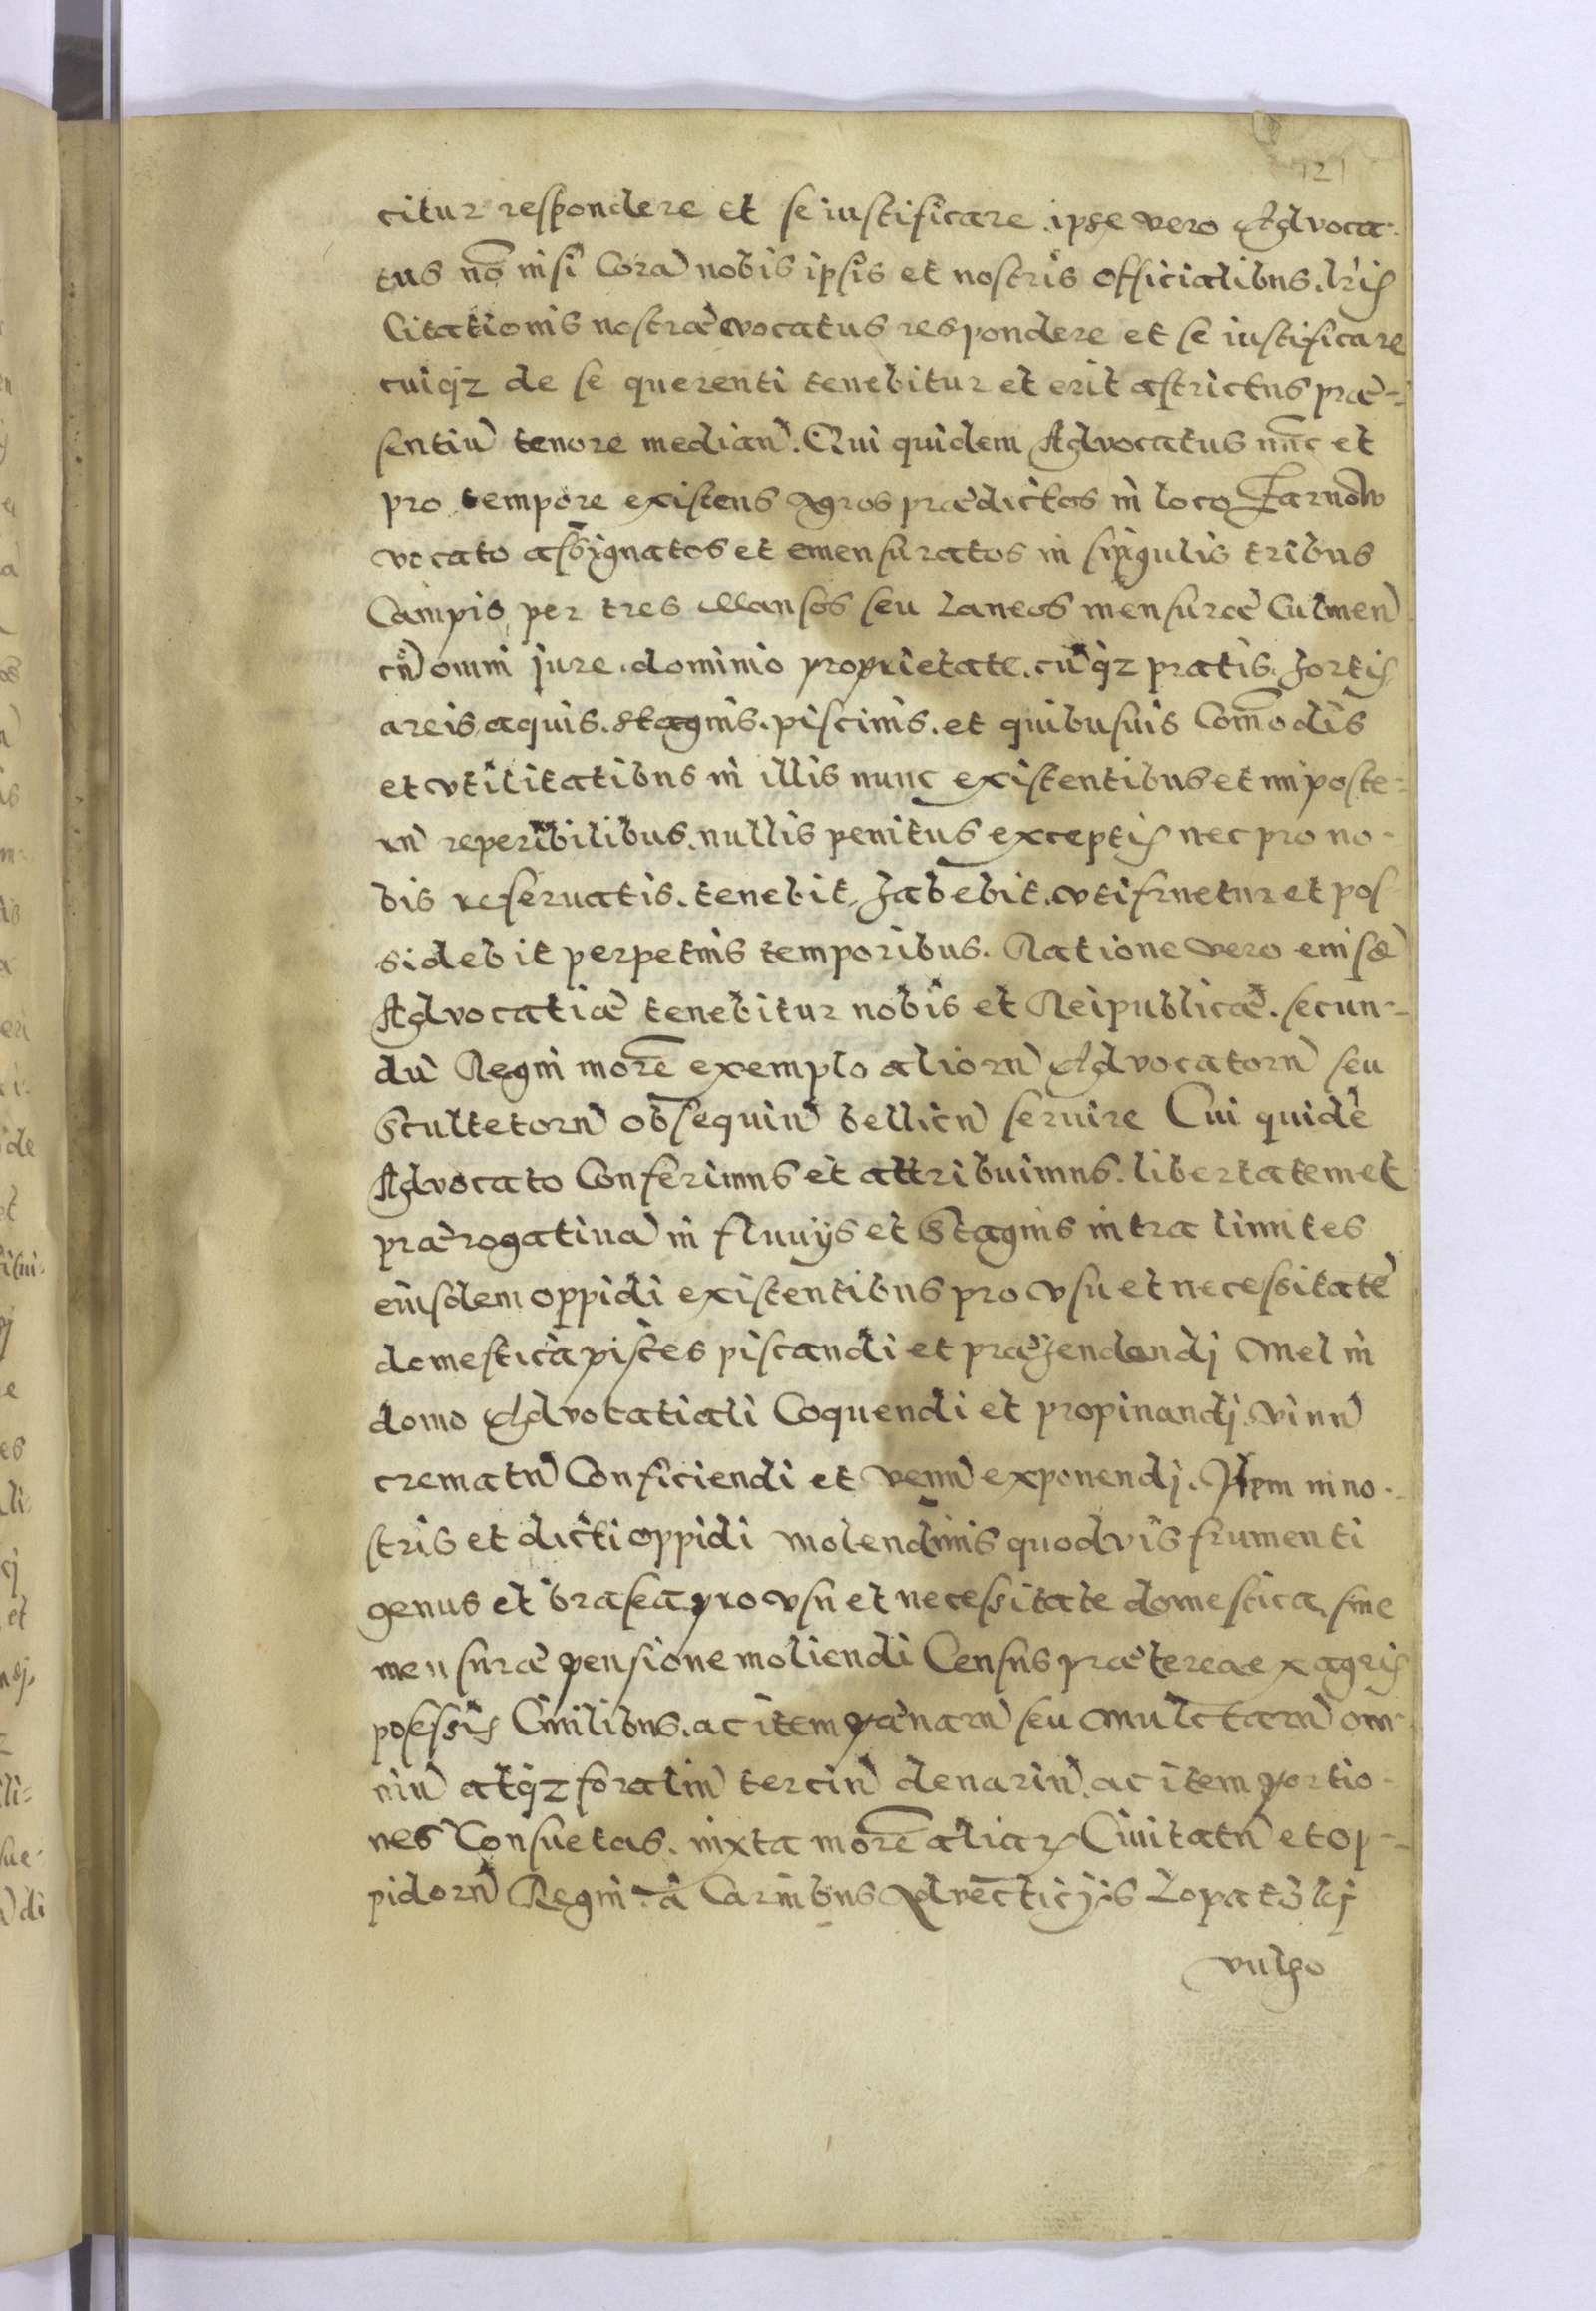 121
citur respondere et se iustificare. ipse vero Advoca-
tus nō nisi Corā nobis ipsis et nostris officialibus. lr̄is
Citationis nostræ evocatus respondere et se iustificare
cuiqz de se querenti tenebitur et erit astrictus præ-
sentiū tenore median̄. Qui quidem Advocatus nūc et
pro tempore existens agros prædictos in loco Tarnow
vocato assignatos et emensuratos in singulis tribus
Campis per tres Mansos seu Laneos mensuræ Culmen̄
cū omni jure. dominio proprietate. cūqz pratis. hortis
areis, aquis. stagnis. piscinis. et quibusuis Com̄odis
et vtilitatibus in illis nunc existentibus et in poste-
rū reperibilibus. nullis penitus exceptis nec pro no-
bis reseruatis. tenebit, habebit. vtifruetur et pos-
sidebit perpetuis temporibus. Ratione vero euisdē
Advocatiæ tenebitur nobis et Reipublicæ. secun-
dū Regni morē exemplo aliorū Advocatorū seu
Scultetorū obsequiū bellicū seruire Cui quidē
Advocato Conferimus et attribuimus. libertatem et
prærogatiuā in fluuijs et Stagnis intra limites
eiusdem oppidi existentibus pro vsu et necessitate
domestica pisces piscandi et præhendendj Mel in
domo Advocatiali Coquendi et propinandj. vinū
crematū Conficiendi et venū exponendj. Item in no-
stris et dicti oppidi molendinis quoduis frumenti
genus et brasea pro vsu et necessitate domestica, sine
mensuræ pensione moliendi Census præterea ex agris
posessis Ciuilibus. ac item pænarū seu mulctarū om-
niū atqz foraliū terciū denariū. ac item portio-
nes Consuetas. iuxta morē aliarꝝ Ciuitatū et op-
pidorū Regni. à Carnibus Aduecticijs Lopatkj
vulgo